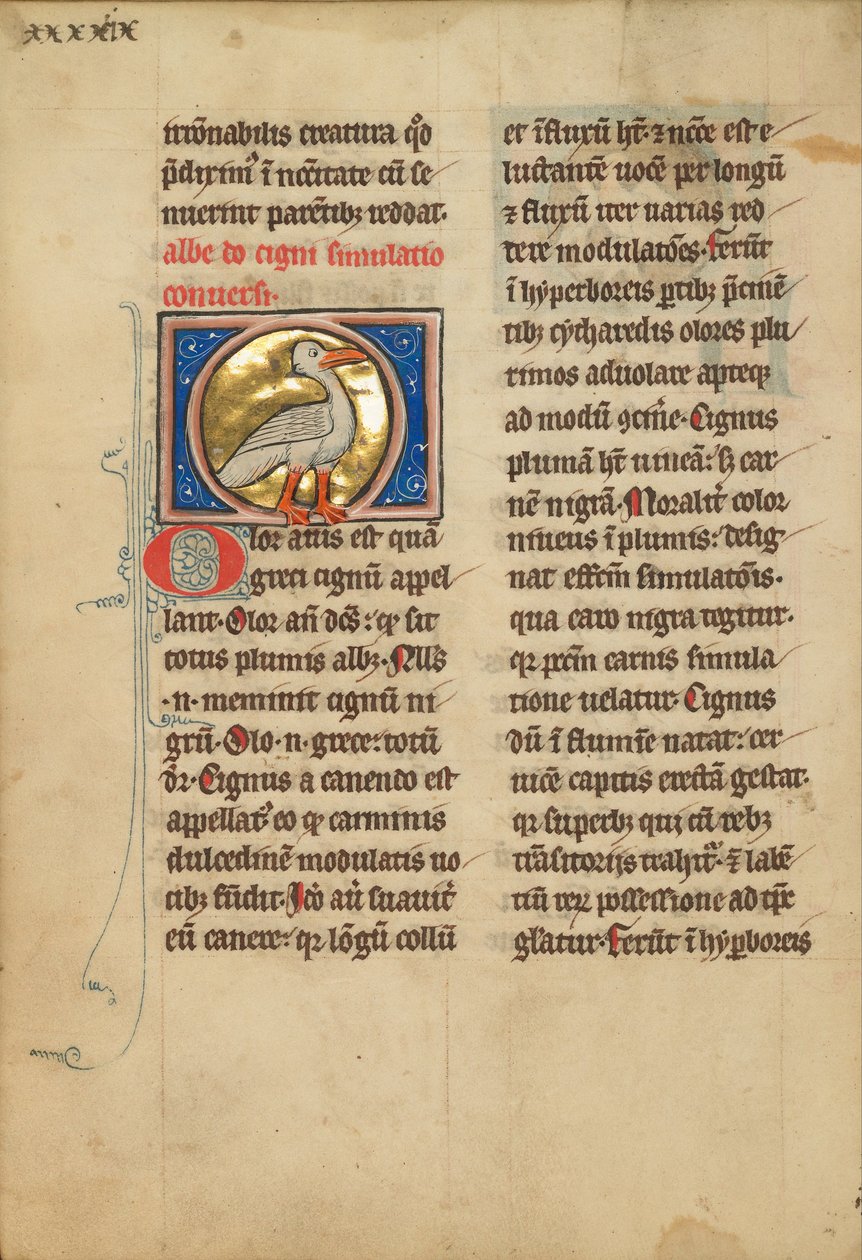 xxxxix
irrōnabilis creatura qͦd
p̄diximꝰ ī nēc̄itate cū se
nuerint parētibꝫ reddat·
albe do cigni simulatio
conuersi·
Olor auis est quā
greci cignū appel
lant· Olor aū dc̄s: ꝙ sit
totus plumis albꝫ· Null's
·n· meminit cignū ni
grū· Olo·n· grece: totū
dr̄· Cignus a canendo est
appellatꝰ eo ꝙ carminis
dulcedinē modulatis uo
cibꝫ fūdit· Icō aū suauit̄
eū canere: qꝛ lōgū collū
et īfluxū ht̄· ⁊ nc̄c̄e est e
luctantē uocē per longū
⁊ fluxū iter uarias red
dere modulatōes· Ferūt
ī hyperboreis ꝑtibꝫ p̄cinē
tibꝫ cytharedis olores plu
rimos aduolare apteqꝫ
ad modū ꝯcīne· Cignus
plumā ht̄ niueā: sꝫ car
nē nigrā· Moralit̄ color
niueus ī plumis: desig
nat effc̄m simulatōis·
qua caro nigra tegitur·
qꝛ pc̄c̄m carnis simula
tione uelatur· Cignus
dū ī flumīe natat: cer
uice capitis erectā gestat·
qꝛ superbꝫ qui cū rebꝫ
trāsitorijs trahit᷑· ⁊ labē
tiū reꝝ possessione ad tp̄c
gl'atur· Ferūt ī hyꝑboreis